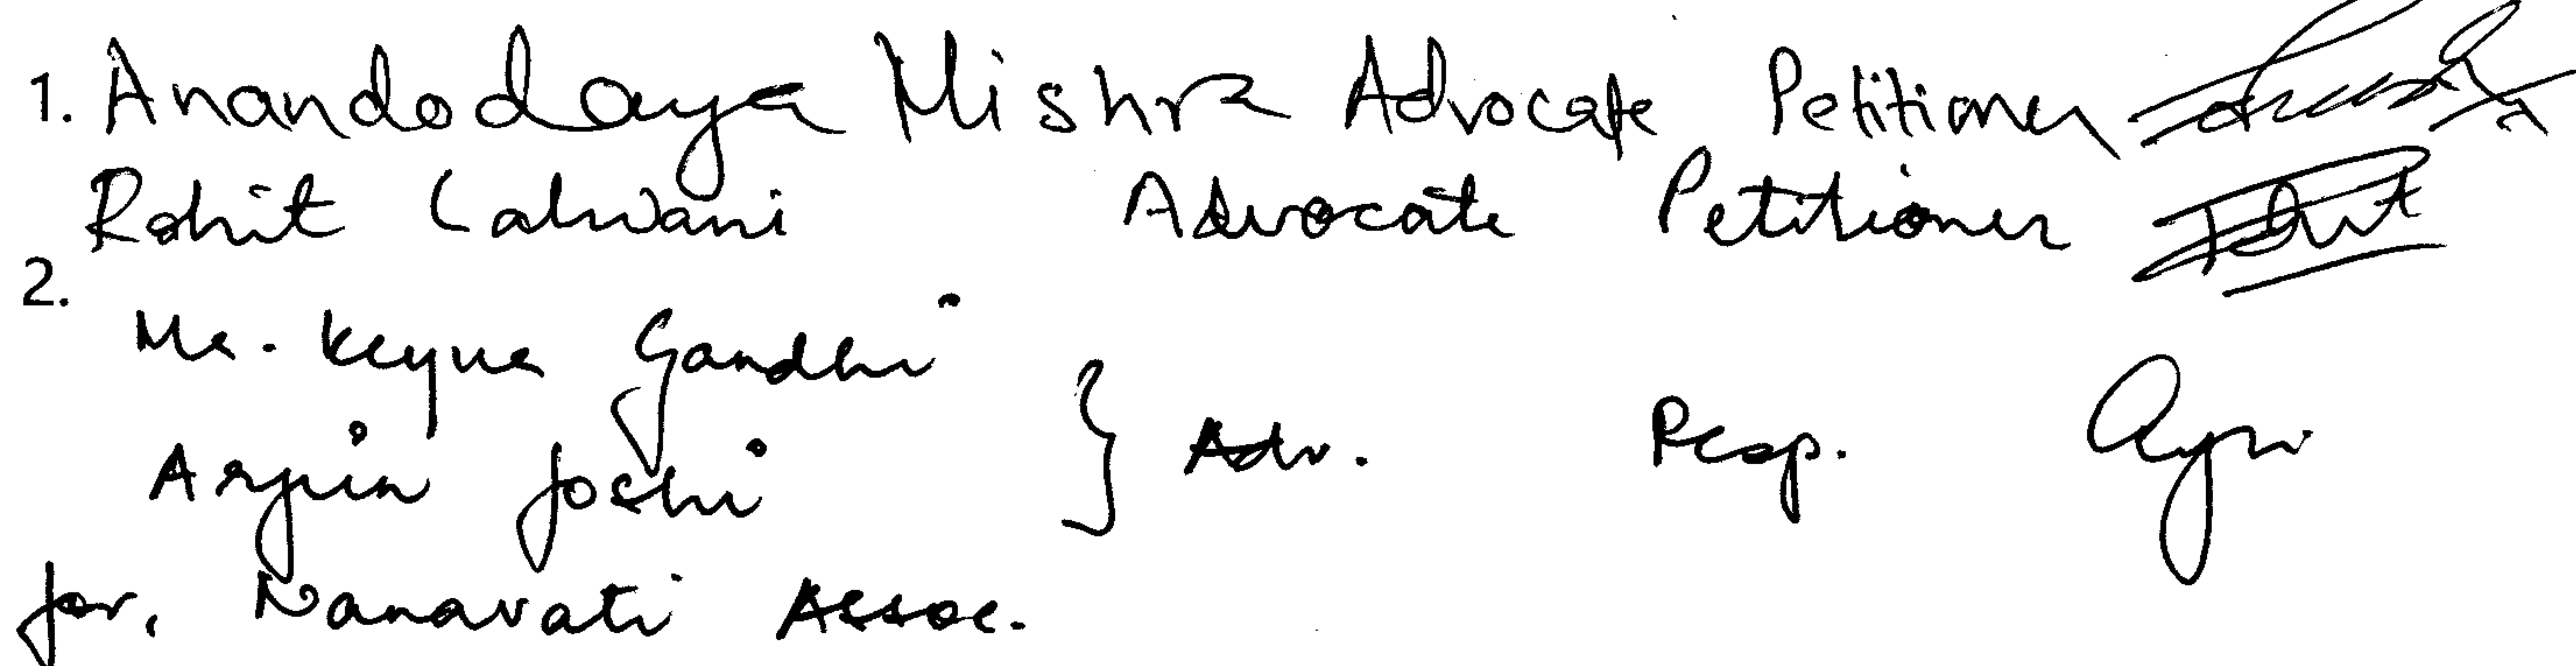 1. Anandodaya Mishra Advocate Petitioner
Rohit Lalwani Advocate Petitioner
2.
Ms. Keyua Gandhi
Arjun Joshi } Adv. Resp.
for, Nanavati Assoc.